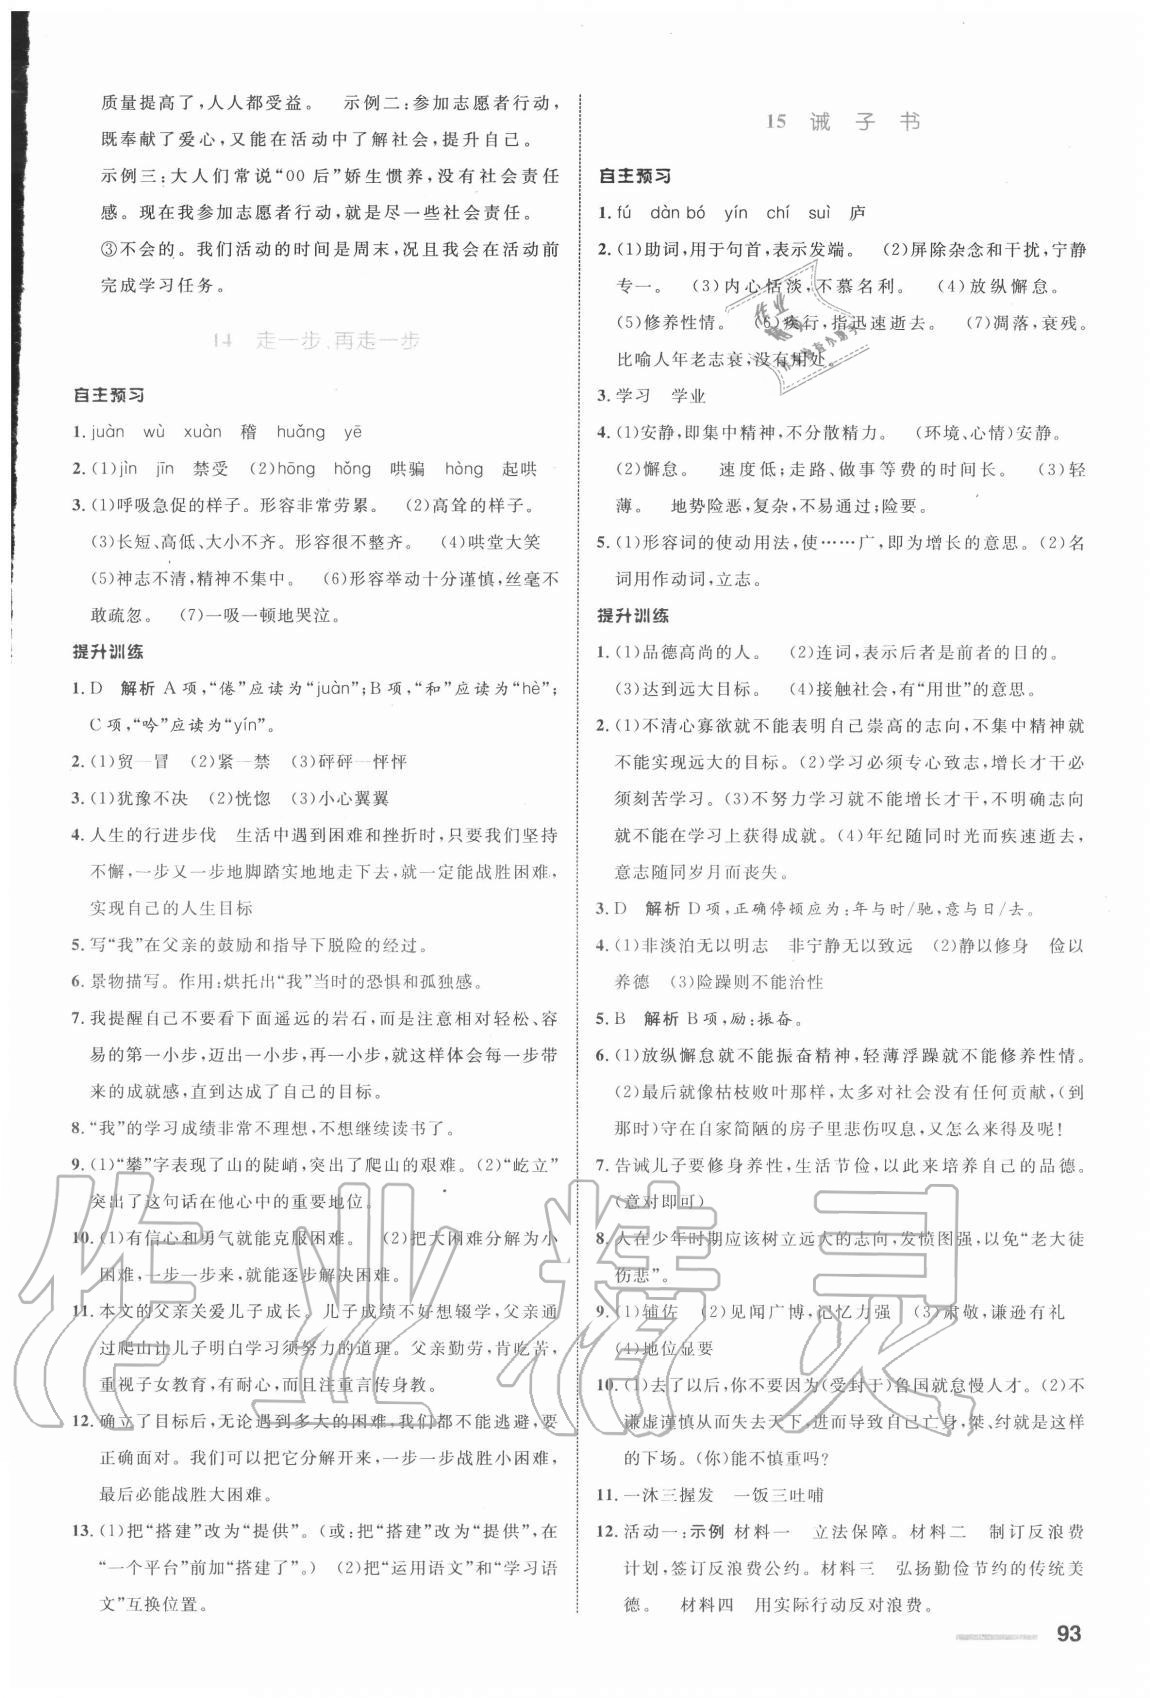 质量提高了,人人都受益。 示例二:参加志愿者行动,
既奉献了爱心,又能在活动中了解社会,提升自己。
示例三:大人们常说“00后”娇生惯养,没有社会责任
感。现在我参加志愿者行动,就是尽一些社会责任。
③不会的。我们活动的时间是周末,况且我会在活动前
完成学习任务。
14 走一步、再走一步
自主预习
1. juàn wù xuàn 稽 huǎng yē
2. (1)jìn jīn 禁受 (2)hōng hǒng 哄骗 hòng 起哄
3. (1)呼吸急促的样子。形容非常劳累。 (2)高耸的样子。
(3)长短、高低、大小不齐。形容很不整齐。 (4)哄堂大笑
(5)神志不清,精神不集中。 (6)形容举动十分谨慎,丝毫不
敢疏忽。 (7)一吸一顿地哭泣。
提升训练
1. D 解析 A项,“倦”应读为“juàn”;B项,“和”应读为“hè”;
C项,“吟”应读为“yín”。
2. (1)贸—冒 (2)紧—禁 (3)砰砰—怦怦
3. (1)犹豫不决 (2)恍惚 (3)小心翼翼
4. 人生的行进步伐 生活中遇到困难和挫折时,只要我们坚持
不懈,一步又一步地脚踏实地地走下去,就一定能战胜困难,
实现自己的人生目标
5. 写“我”在父亲的鼓励和指导下脱险的经过。
6. 景物描写。作用:烘托出“我”当时的恐惧和孤独感。
7. 我提醒自己不要看下面遥远的岩石,而是注意相对轻松、容
易的第一小步,迈出一小步,再一小步,就这样体会每一步带
来的成就感,直到达成了自己的目标。
8. “我”的学习成绩非常不理想,不想继续读书了。
9. (1)“攀”字表现了山的陡峭,突出了爬山的艰难。(2)“屹立”
突出了这句话在他心中的重要地位。
10. (1)有信心和勇气就能克服困难。 (2)把大困难分解为小
困难,一步一步来,就能逐步解决困难。
11. 本文的父亲关爱儿子成长。儿子成绩不好想辍学,父亲通
过爬山让儿子明白学习须努力的道理。父亲勤劳,肯吃苦,
重视子女教育,有耐心,而且注重言传身教。
12. 确立了目标后,无论遇到多大的困难,我们都不能逃避,要
正确面对。我们可以把它分解开来,一步一步战胜小困难,
最后必能战胜大困难。
13. (1)把“搭建”改为“提供”。(或:把“搭建”改为“提供”,在
“一个平台”前加“搭建了”。) (2)把“运用语文”和“学习语
文”互换位置。
15 诫子书
自主预习
1. fú dàn bó yín chí suì 庐
2. (1)助词,用于句首,表示发端。 (2)屏除杂念和干扰,宁静
专一。 (3)内心恬淡,不慕名利。 (4)放纵懈怠。
(5)修养性情。 (6)疾行,指迅速逝去。 (7)凋落,衰残。
比喻人年老志衰,没有用处。
3. 学习 学业
4. (1)安静,即集中精神,不分散精力。 (环境、心情)安静。
(2)懈怠。 速度低;走路、做事等费的时间长。 (3)轻
薄。 地势险恶,复杂,不易通过;险要。
5. (1)形容词的使动用法,使……广,即为增长的意思。(2)名
词用作动词,立志。
提升训练
1. (1)品德高尚的人。 (2)连词,表示后者是前者的目的。
(3)达到远大目标。 (4)接触社会,有“用世”的意思。
2. (1)不清心寡欲就不能表明自己崇高的志向,不集中精神就
不能实现远大的目标。(2)学习必须专心致志,增长才干必
须刻苦学习。(3)不努力学习就不能增长才干,不明确志向
就不能在学习上获得成就。(4)年纪随同时光而疾速逝去,
意志随同岁月而丧失。
3. D 解析 D项,正确停顿应为:年与时/驰,意与日/去。
4. (1)非淡泊无以明志 非宁静无以致远 (2)静以修身 俭以
养德 (3)险躁则不能治性
5. B 解析 B项,励:振奋。
6. (1)放纵懈怠就不能振奋精神,轻薄浮躁就不能修养性情。
(2)最后就像枯枝败叶那样,太多对社会没有任何贡献,(到
那时)守在自家简陋的房子里悲伤叹息,又怎么来得及呢!
7. 告诫儿子要修身养性,生活节俭,以此来培养自己的品德。
(意对即可)
8. 人在少年时期应该树立远大的志向,发愤图强,以免“老大徒
伤悲”。
9. (1)辅佐 (2)见闻广博,记忆力强 (3)肃敬,谦逊有礼
(4)地位显要
10. (1)去了以后,你不要因为(受封于)鲁国就怠慢人才。(2)不
谦虚谨慎从而失去天下,进而导致自己亡身,桀、纣就是这样
的下场。(你)能不慎重吗?
11. 一沐三握发 一饭三吐哺
12. 活动一:示例 材料一 立法保障。材料二 制订反浪费
计划,签订反浪费公约。材料三 弘扬勤俭节约的传统美
德。 材料四 用实际行动反对浪费。
93
作业精灵